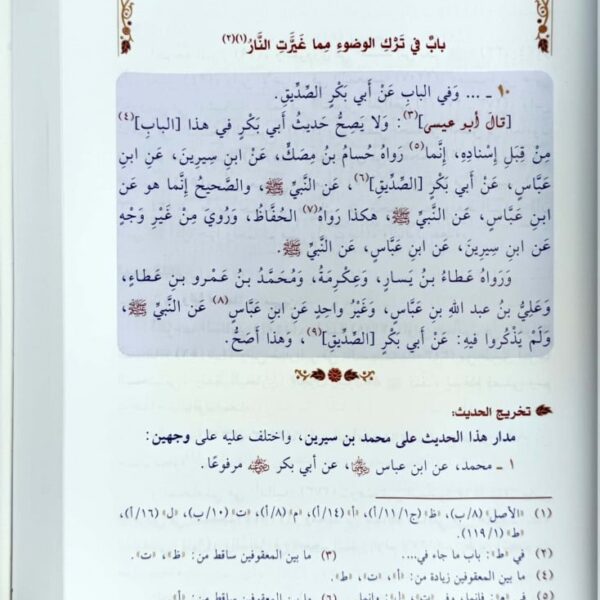 بابٌ في تَرْكِ الوضوءِ مِما غَيَّرَتِ النَّارُ (١)(٢)
١٠ ـ ... وَفي البابِ عَنْ أَبي بَكْرٍ الصِّدِّيقِ.
[قالَ أبو عيسى](٣): وَلا يَصِحُّ حَديثُ أبي بَكْرٍ في هذا [البابِ](٤)
مِنْ قِبَلِ إسْنادِهِ، إنَّما(٥) رَواهُ حُسامُ بنُ مِصَكٍّ، عَن ابنِ سِيرِينَ، عَن ابنِ
عَبَّاسٍ، عَنْ أَبي بَكْرٍ [الصِّدِّيقِ](٦)، عَن النَّبيِّ ﷺ، والصَّحيحُ إنَّما هو عَن
ابنِ عَبَّاسٍ، عَن النَّبيِّ ﷺ، هكذا رَواهُ(٧) الحُفَّاظُ، وَرُوِيَ مِنْ غَيْرِ وَجْهٍ
عَن ابنِ سِيرينَ، عَن ابنِ عَبَّاسٍ، عَن النَّبيِّ ﷺ.
وَرَواهُ عَطاءُ بنُ يَسارٍ، وَعِكْرِمَةُ، وَمُحَمَّدُ بنُ عَمْرو بنِ عَطاءٍ،
وَعَليُّ بنُ عبد اللهِ بنِ عَبَّاسٍ، وَغَيْرُ واحِدٍ عَنِ ابنِ عَبَّاسٍ(٨) عَن النَّبيِّ ﷺ،
وَلَمْ يَذْكُروا فيهِ: عَنْ أَبي بَكْرٍ [الصِّدِّيقِ](٩)، وَهذا أَصَحُّ.
تخريج الحديث:
مدار هذا الحديث على محمد بن سيرين، واختلف عليه على وجهين:
١ ـ محمد، عن ابن عباس ﵄، عن أبي بكر ﵁ مرفوعًا.
(١) «الأصل» (٨/ب)، «ظ» (ج١/١١/أ)، «أ» (١٤/أ)، «م» (٨/أ)، «ت» (١٠/ب)، «ل» (١٦/أ)،
«ط» (١١٩/١).
(٢) في «ط»: باب ما جاء في.... (٣) ما بين المعقوفين ساقط من: «ظ»، «ت».
(٤) ما بين المعقوفين زيادة من: «أ»، «ت»، «ط».